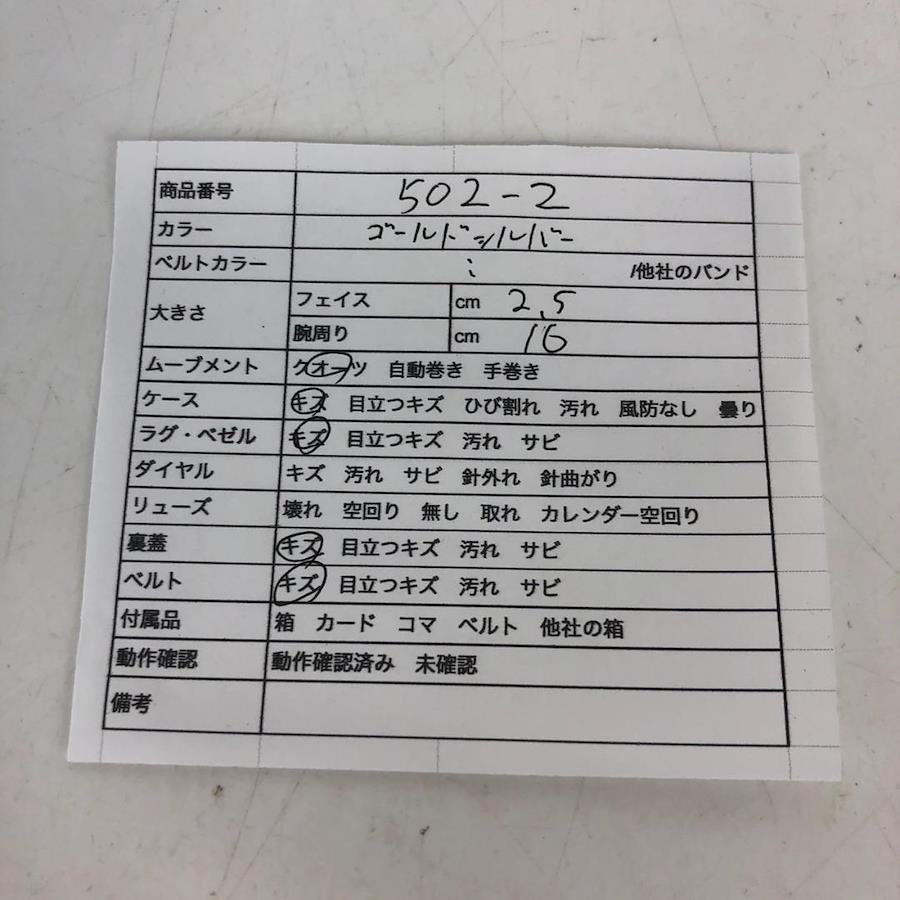 商品番号 502-2
カラー ゴールドシルバー
ベルトカラー : /他社のバンド
大きさ フェイス cm 2.5
腕周り cm 16
ムーブメント クオーツ 自動巻き 手巻き
ケース キズ 目立つキズ ひび割れ 汚れ 風防なし 曇り
ラグ・ベゼル キズ 目立つキズ 汚れ サビ
ダイヤル キズ 汚れ サビ 針外れ 針曲がり
リューズ 壊れ 空回り 無し 取れ カレンダー空回り
裏蓋 キズ 目立つキズ 汚れ サビ
ベルト キズ 目立つキズ 汚れ サビ
付属品 箱 カード コマ ベルト 他社の箱
動作確認 動作確認済み 未確認
備考